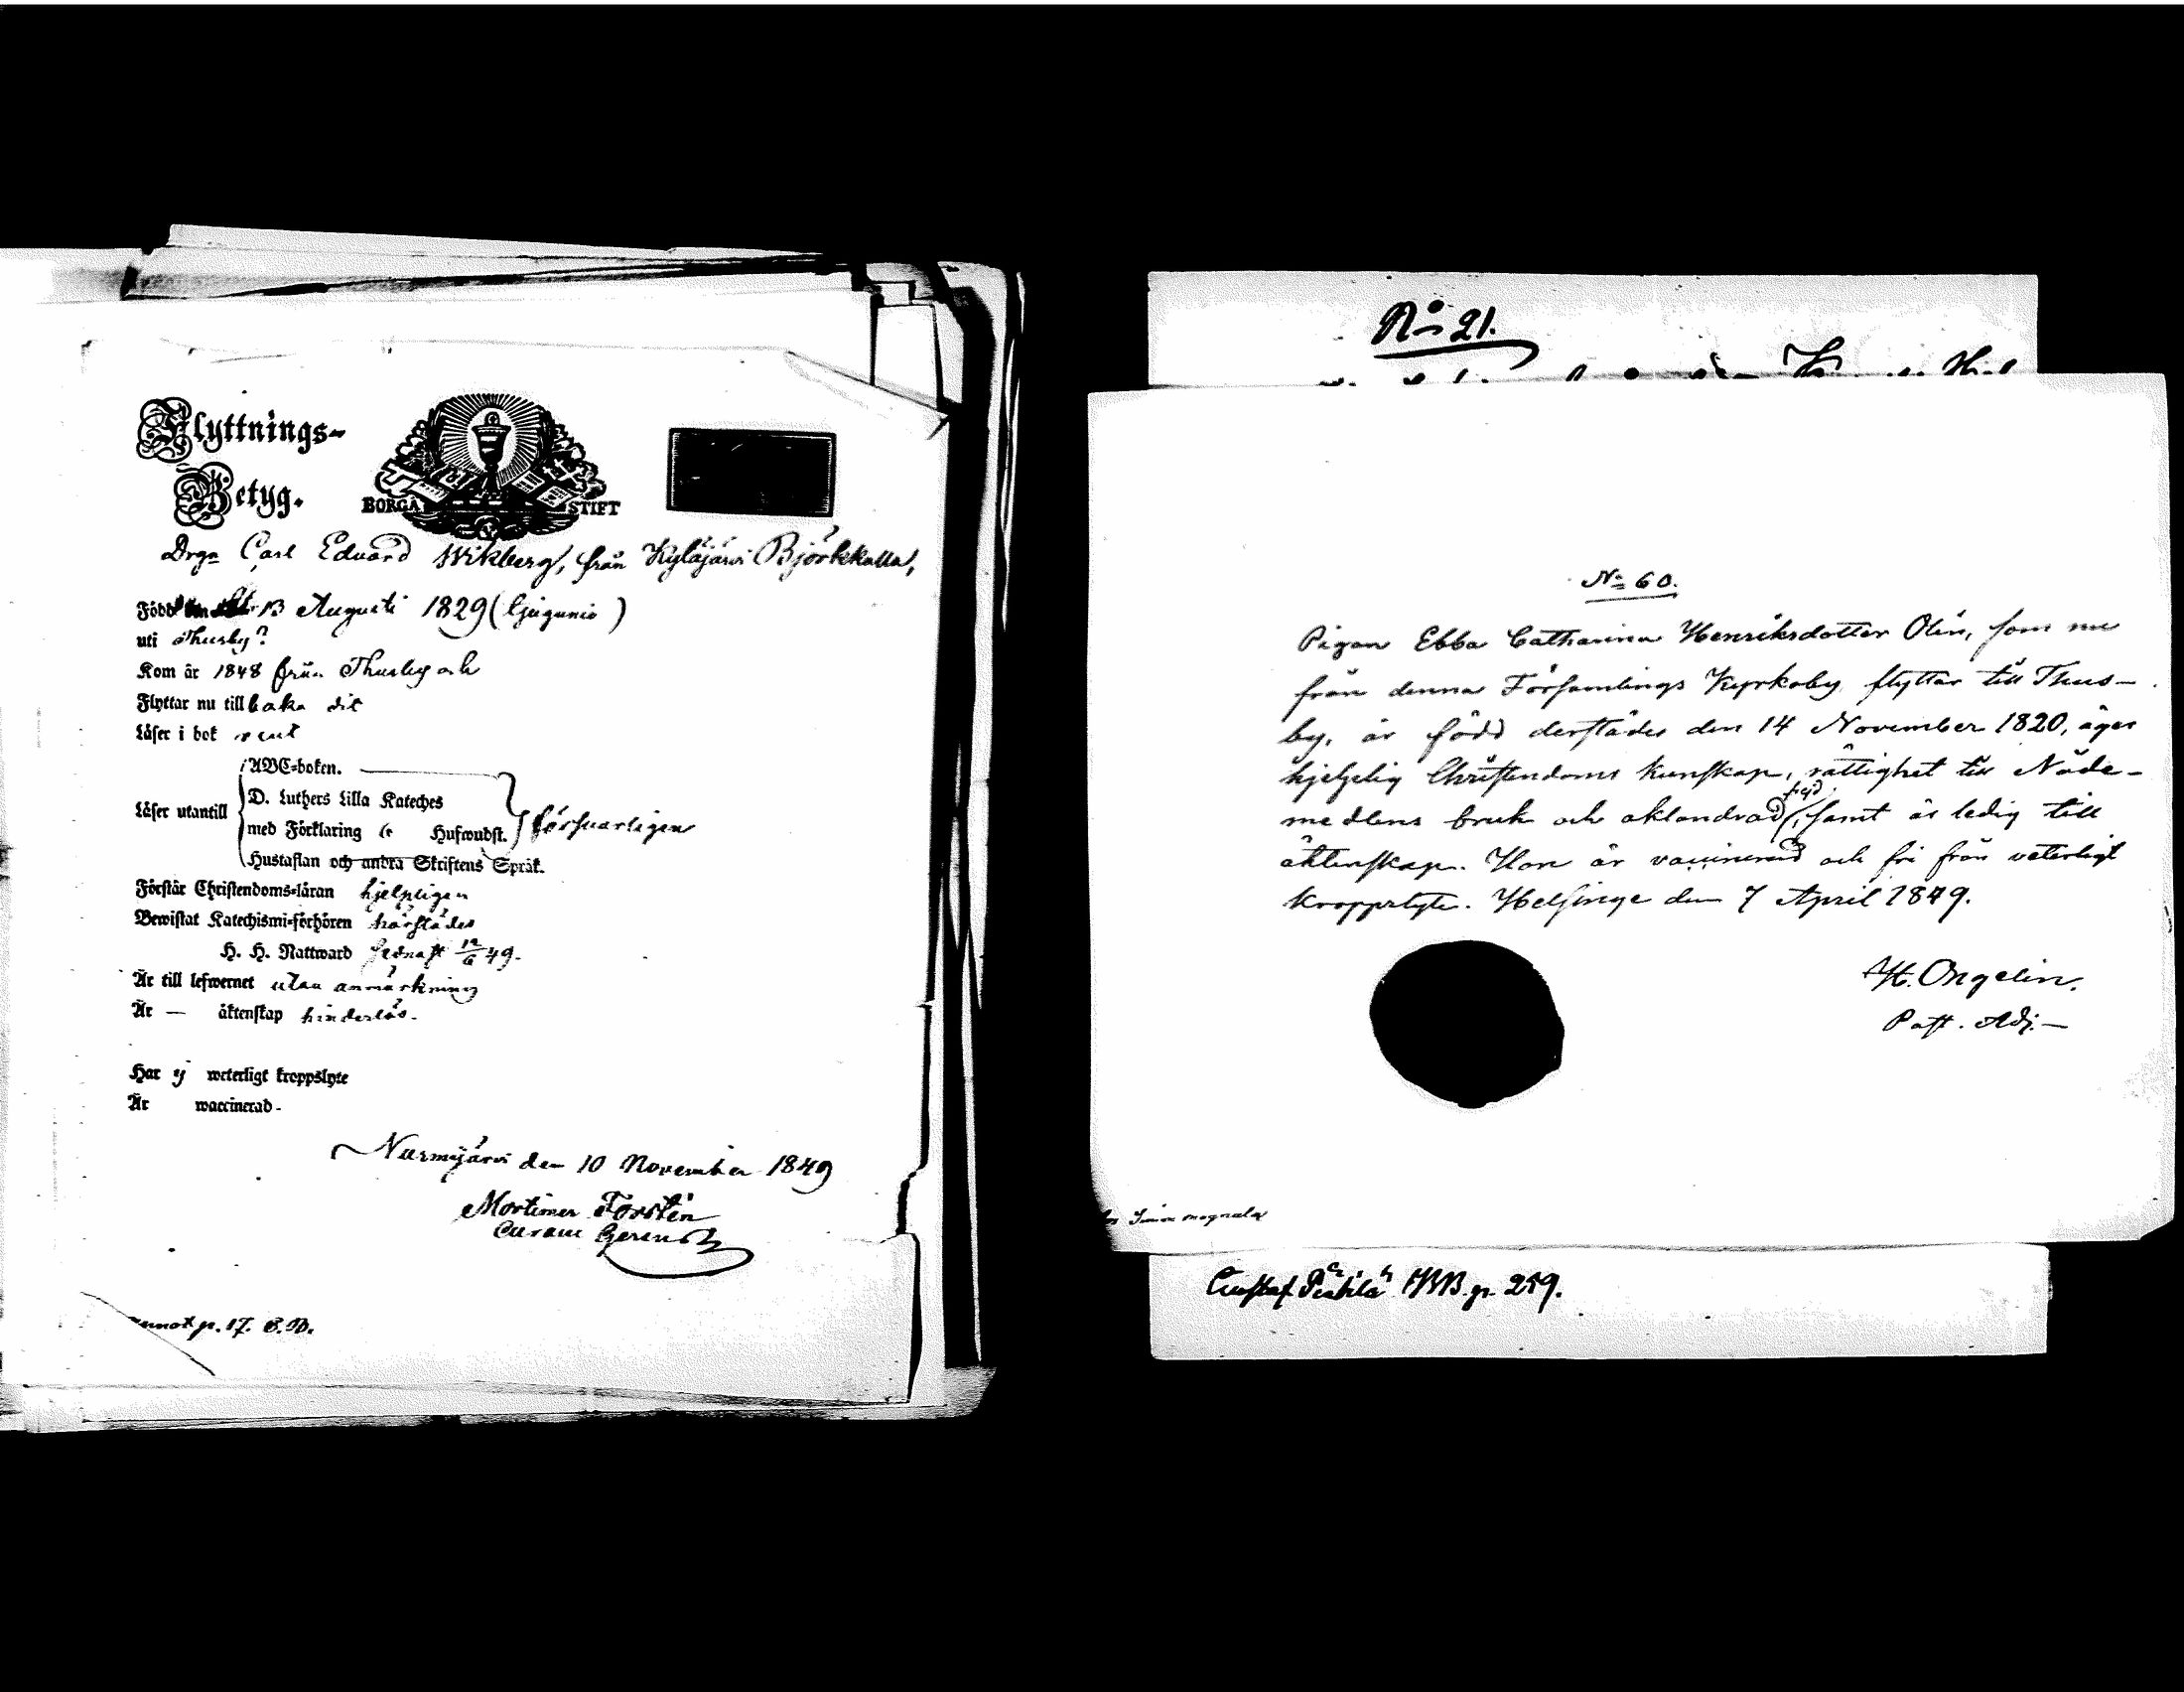 Flyttnings-
Betyg.
BORGÅ STIFT
Drgn Carl Eduard Wikberg, från Kyläjärvi Björkkulla,
Född 13 Augusti 1829 (
uti Thusby?
Kom år 1848 från Thusby och
Flyttar nu till baka dit
Läser i bok rent
ABC-boken.
D. Luthers Lilla Kateches
Läser utantill
med Förklaring Hufwudst. försvarligen
Hustaflan och andra Skriftens Språk.
Förstår Christendoms-läran hjelpligen
Bewistat Katechismi-förhören härstädes
H. H. Nattward sednast 12/6 49.
Är till lefwernet utan anmärkning
Är — äktenskap hinderlös.
Har ej weterligt kroppslyte
Är waccinerad.
Nurmijärvi den 10 November 1849
Mortimer Forstén
Curam Gerens
annot p. 17. S.B.
No 21.
No 60.
Pigan Ebba Catharina Henriksdotter Olin, som nu
från denna Församlings Kyrkoby flyttar till Thus-
by, är född derstädes den 14 November 1820, äger
hjelpelig Christendoms kunskap, rättighet till Nåde-
frejd
medlens bruk och oklandrad, samt är ledig till
äktenskap. Hon är vaccinerad och fri från veterligt
kroppslyte. Helsinge den 7 April 1849.
H. Ongelin.
Past. Adj.
Gustaf p. 259.